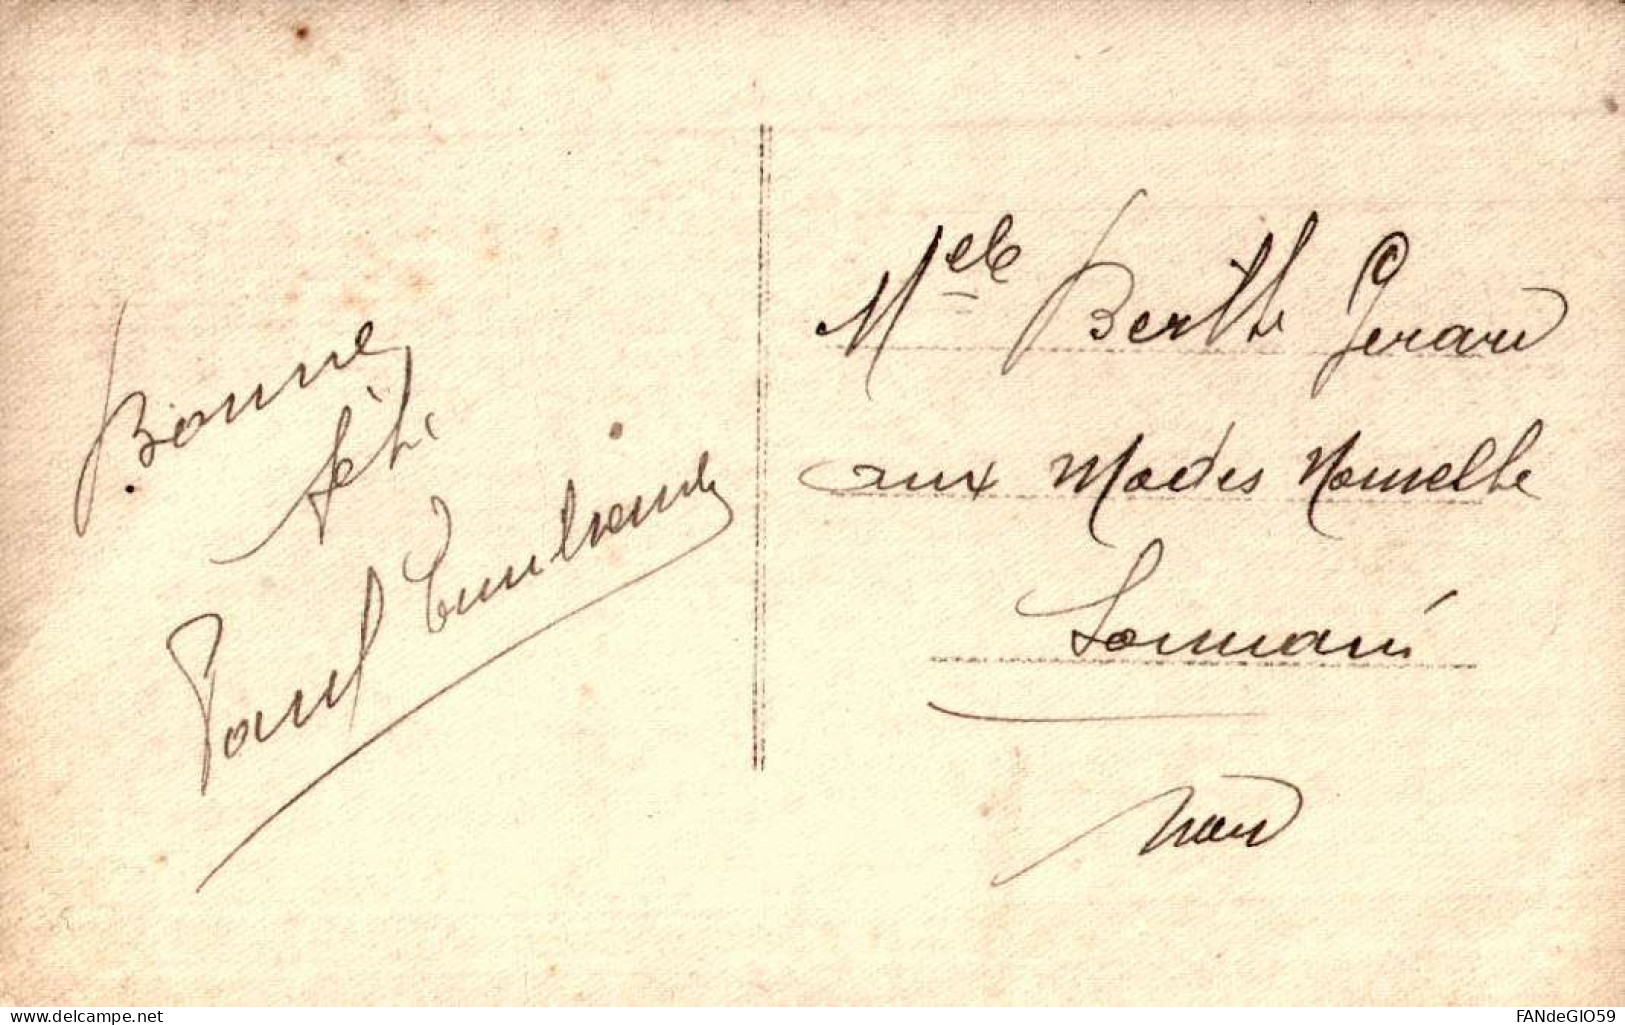 Bonne
fête
Paul
Melle Berthe Gerard
aux Modes Nouvelle
Lommari
Nord
www.delcampe.net
FANdeGIO59